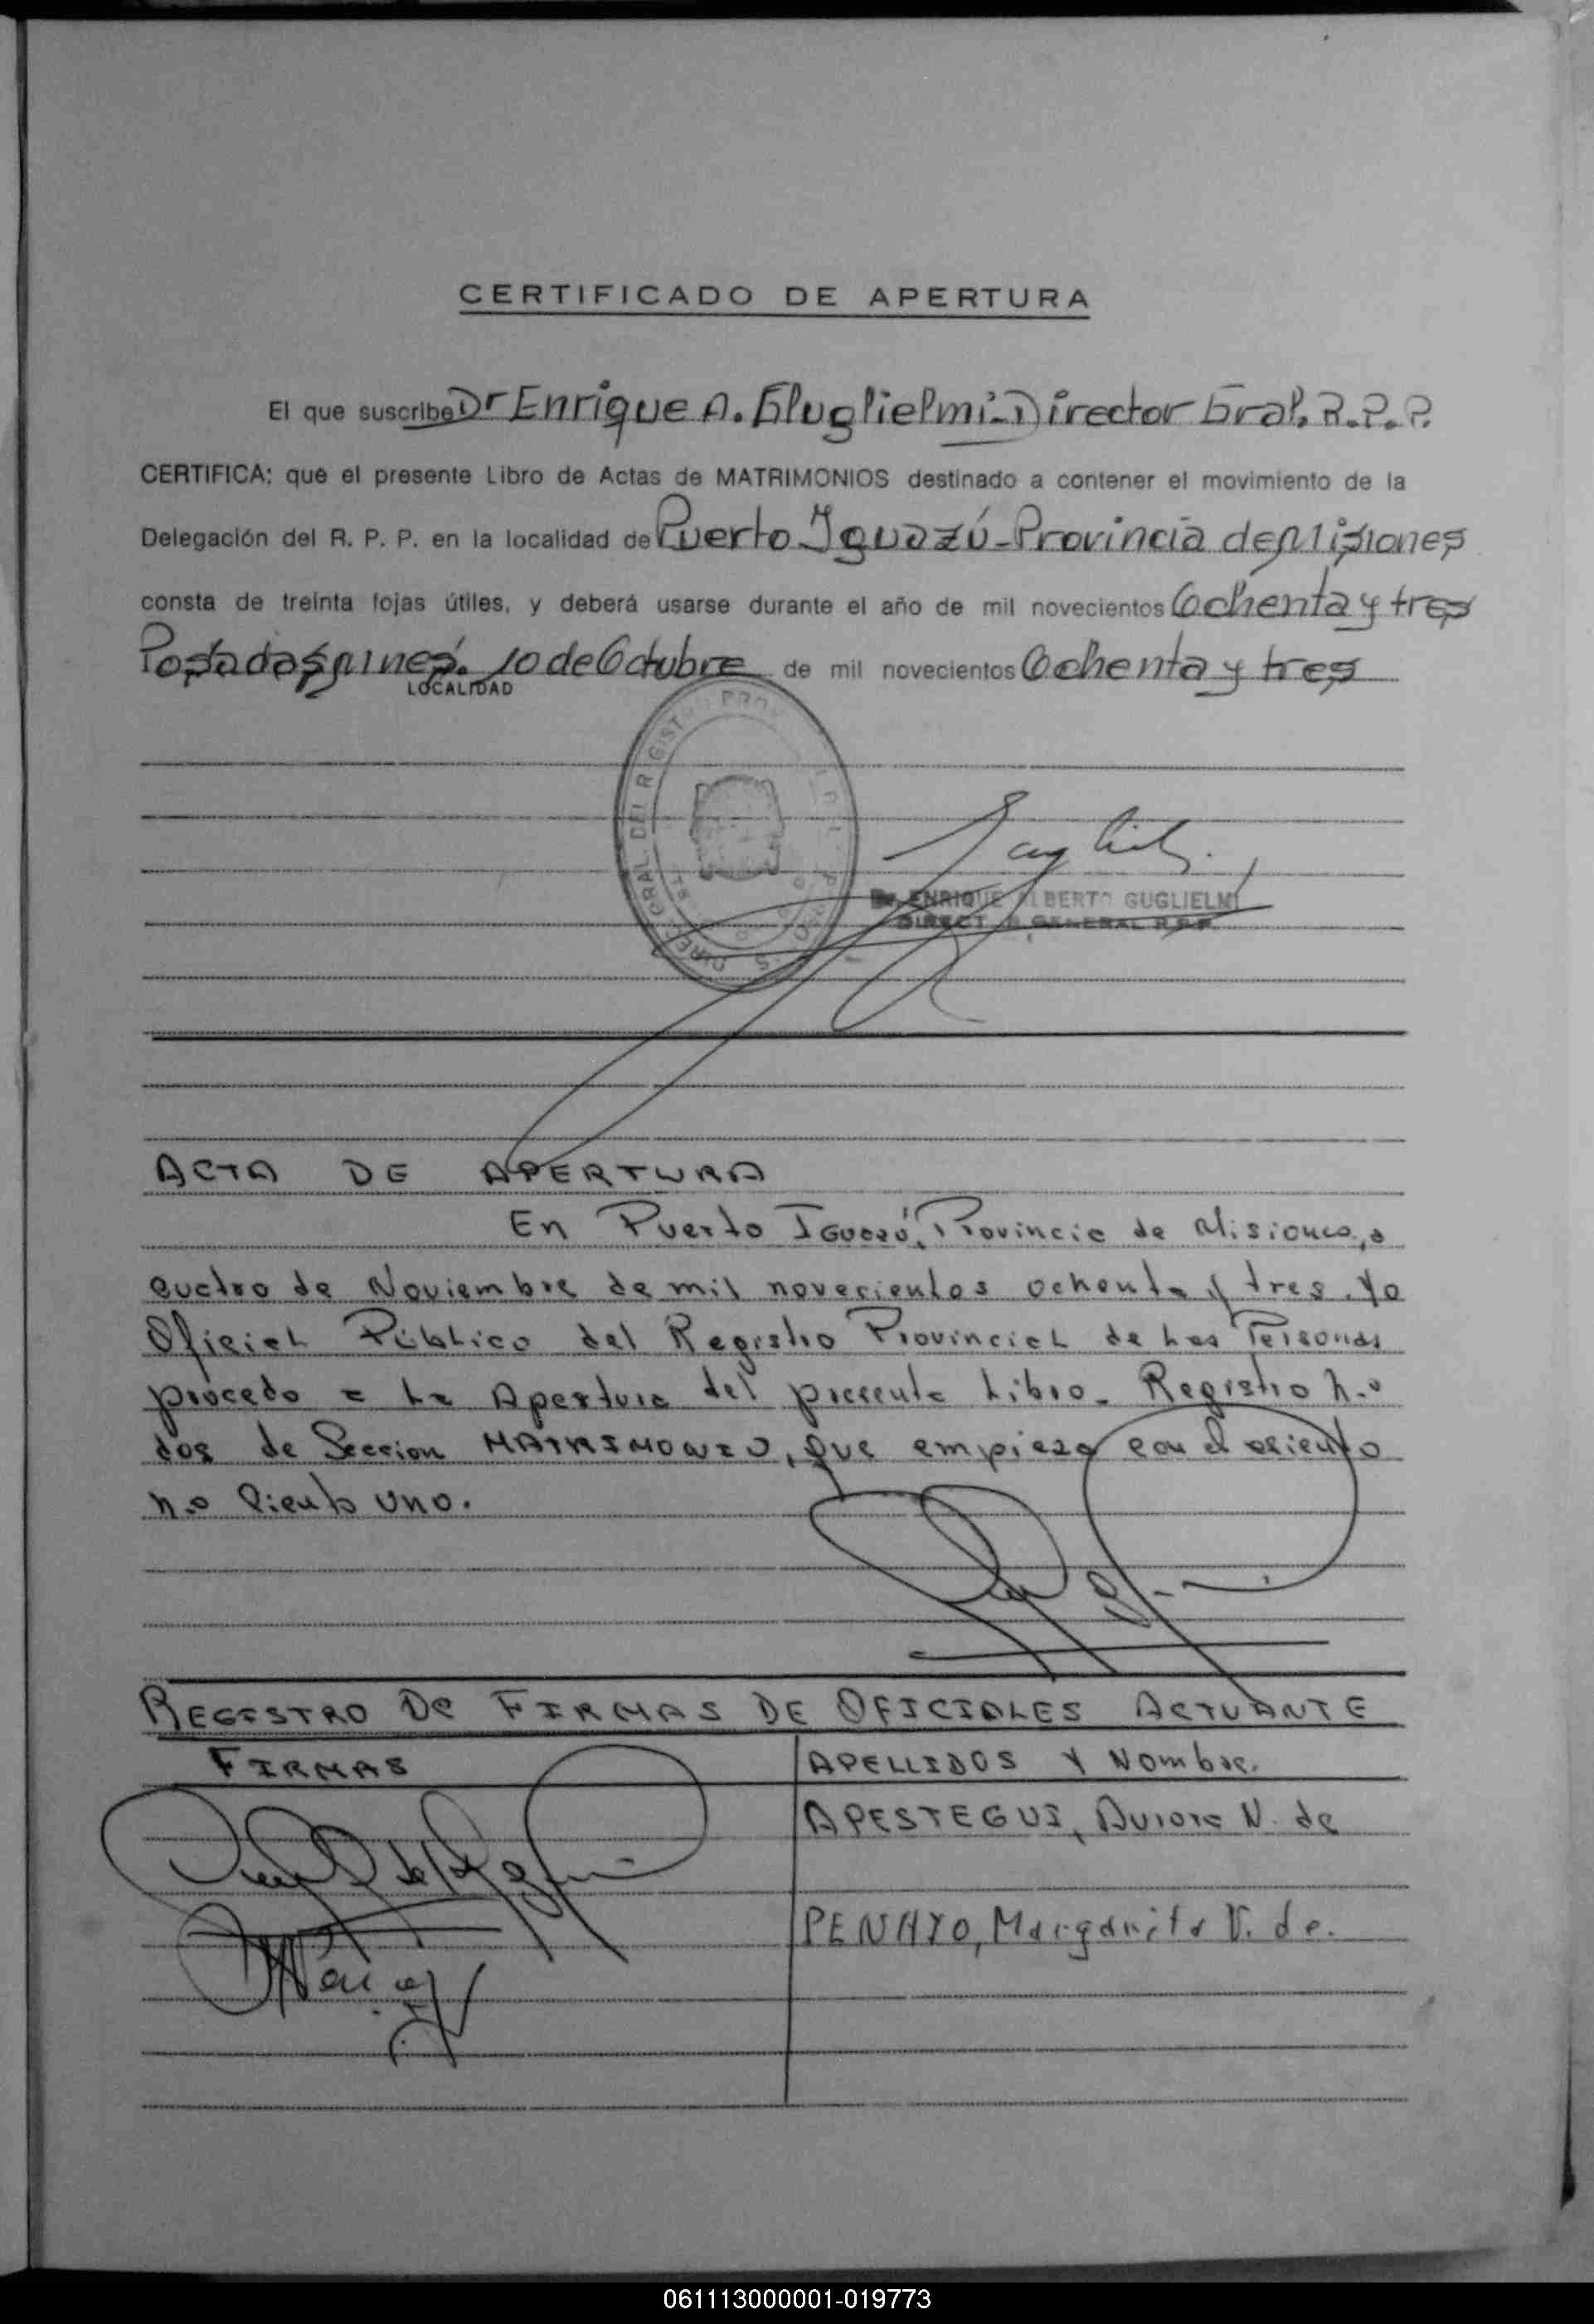 CERTIFICADO DE APERTURA
El que suscribe Dr Enrique A. Gluglielmi - Director Gral. R.P.P.
CERTIFICA: que el presente Libro de Actas de MATRIMONIOS destinado a contener el movimiento de la
Delegación del R. P. P. en la localidad de Puerto Iguazú - Provincia de Misiones
consta de treinta fojas útiles, y deberá usarse durante el año de mil novecientos Ochenta y tres
Posadas, Mnes. 10 de Octubre de mil novecientos Ochenta y tres
LOCALIDAD
Dr. ENRIQUE ALBERTO GUGLIELMI
DIRECTOR GENERAL R.P.P.
ACTA DE APERTURA
En Puerto Iguazú, Provincia de Misiones, a
cuatro de Noviembre de mil novecientos ochenta y tres. Yo
Oficial Público del Registro Provincial de las Personas
procedo a la Apertura del presente Libro - Registro n.o
dos de Seccion MATRIMONIO, que empieza con el asiento
n.o Ciento uno.
REGISTRO De FIRMAS DE OFICIALES ACTUANTE
FIRMAS
APELLIDOS Y Nombre.
APESTEGUI, Aurora N. de
PENAYO, Margarita V. de.
061113000001-019773